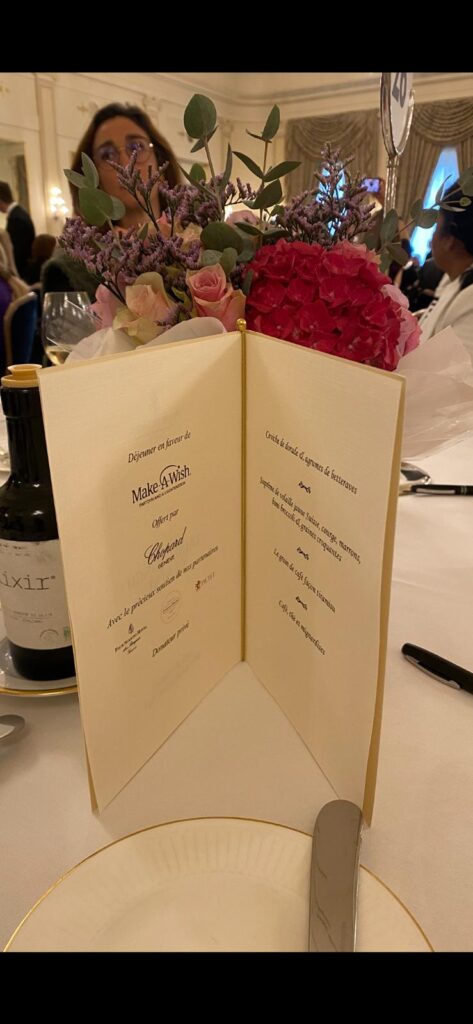 Déjeuner en faveur de
Make-A-Wish
SWITZERLAND & LIECHTENSTEIN
Offert par
Chopard
GENÈVE
Avec le précieux soutien de nos partenaires
Donateur privé
Ceviche de dorade & agrumes de betteraves
Suprême de volaille jaune Suisse, courge, marrons,
mini brocoli & graines croquantes
Le grain de café façon tiramisu
Café, thé et mignardises
ixir